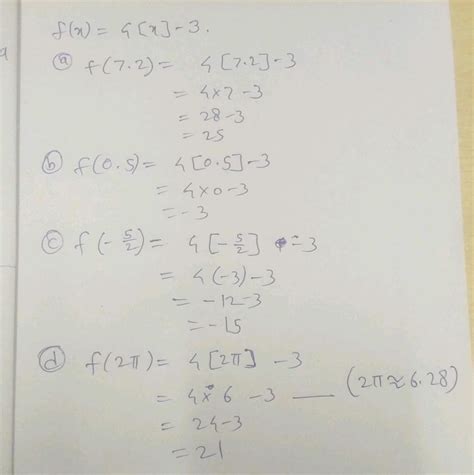 f(x) = 4[x]-3.
ⓐ f(7.2) = 4[7.2]-3
= 4×7-3
= 28-3
= 25
ⓑ f(0.5) = 4[0.5]-3
= 4×0-3
= -3
ⓒ f(-5/2) = 4[-5/2] -3
= 4(-3)-3
= -12-3
= -15
ⓓ f(2π) = 4[2π] -3
= 4×6 -3 — (2π≈6.28)
= 24-3
= 21